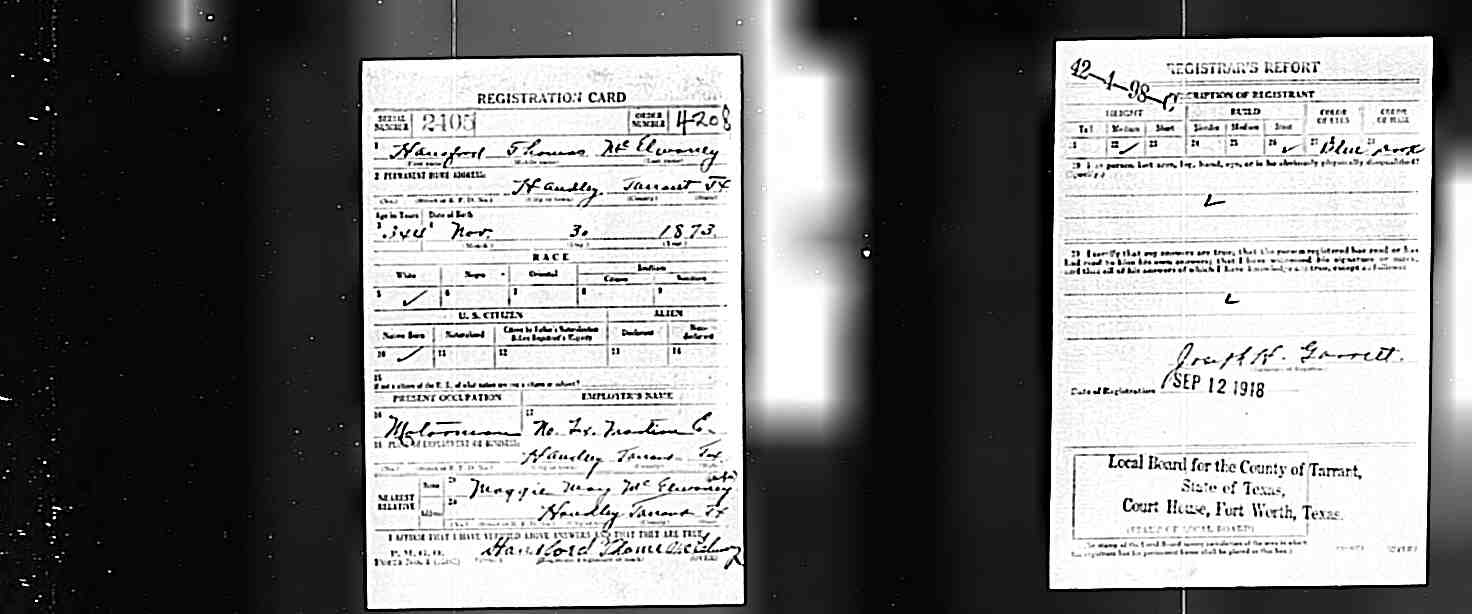 REGISTRATION CARD
SERIAL NUMBER 2405 ORDER NUMBER 4208
1 Hansford Thomas McElwaney
(First name) (Middle name) (Last name)
2 PERMANENT HOME ADDRESS:
Handley Tarrant Tx
(No.) (Street or R. F. D. No.) (City or town) (County) (State)
Age in Years Date of Birth
3 44 4 Nov. 30 1873
(Month) (Day) (Year)
RACE
White Negro Oriental Indian
Citizen Noncitizen
5 ✓ 6 7 8 9
U. S. CITIZEN ALIEN
Native Born Naturalized Citizen by Father's Naturalization Before Registrant's Majority Declarant Non-declarant
10 ✓ 11 12 13 14
15
If not a citizen of the U. S., of what nation are you a citizen or subject?
PRESENT OCCUPATION EMPLOYER'S NAME
16 Motorman 17 No. Tx. Traction Co.
18 PLACE OF EMPLOYMENT OR BUSINESS:
Handley Tarrant Tx.
(No.) (Street or R. F. D. No.) (City or town) (County) (State)
NEAREST RELATIVE Name 19 Maggie May McElwaney
Address 20 Handley Tarrant Tx
(No.) (Street or R. F. D. No.) (City or town) (County) (State)
I AFFIRM THAT I HAVE VERIFIED ABOVE ANSWERS AND THAT THEY ARE TRUE
P. M. G. O.
Hansford Thomas McElwaney
(Registrant's signature or mark) (OVER)
42-4-98-C
REGISTRAR'S REPORT
DESCRIPTION OF REGISTRANT
HEIGHT BUILD COLOR OF EYES COLOR OF HAIR
Tall Medium Short Slender Medium Stout
21 22 ✓ 23 24 25 26 ✓ 27 Blue 28
29 Has person lost arm, leg, hand, eye, or is he obviously physically disqualified? (Specify.)
30 I certify that my answers are true; that the person registered has read or has
had read to him his own answers; that I have witnessed his signature or mark,
and that all of his answers of which I have knowledge are true, except as follows:
Joseph H. Garrett.
(Signature of Registrar)
Date of Registration SEP 12 1918
Local Board for the County of Tarrant,
State of Texas,
Court House, Fort Worth, Texas.
(STAMP OF LOCAL BOARD)
(The stamp of the Local Board having jurisdiction of the area in which
the registrant has his permanent home shall be placed in this box.)
(OVER)